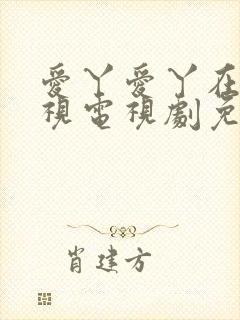 愛丫愛丫在
視電視劇免
肖建方